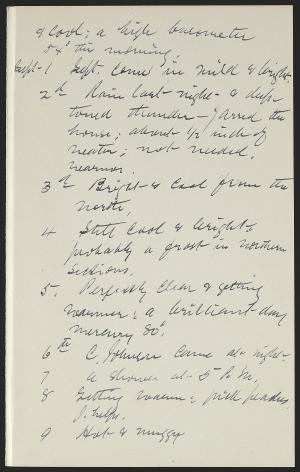 & cool; a high barometer
54° this morning.
Sept-1 Sept. comes in mild & bright.
2d Rain last-night- & deep
toned thunder- jarred the
house; about ½ inch of
water; not needed.
warmer.
3d Bright- & cool from the
north.
4 Still cool & bright &
probably a frost in northern
sections.
5. Perfectly clear & getting
warmer; a brilliant-day
mercury 80°.
6th C. Johnson came at-night-
7 a shower at- 5 P.M.
8 Getting warm; pick peaches,
J. helps.
9 Hot & muggy